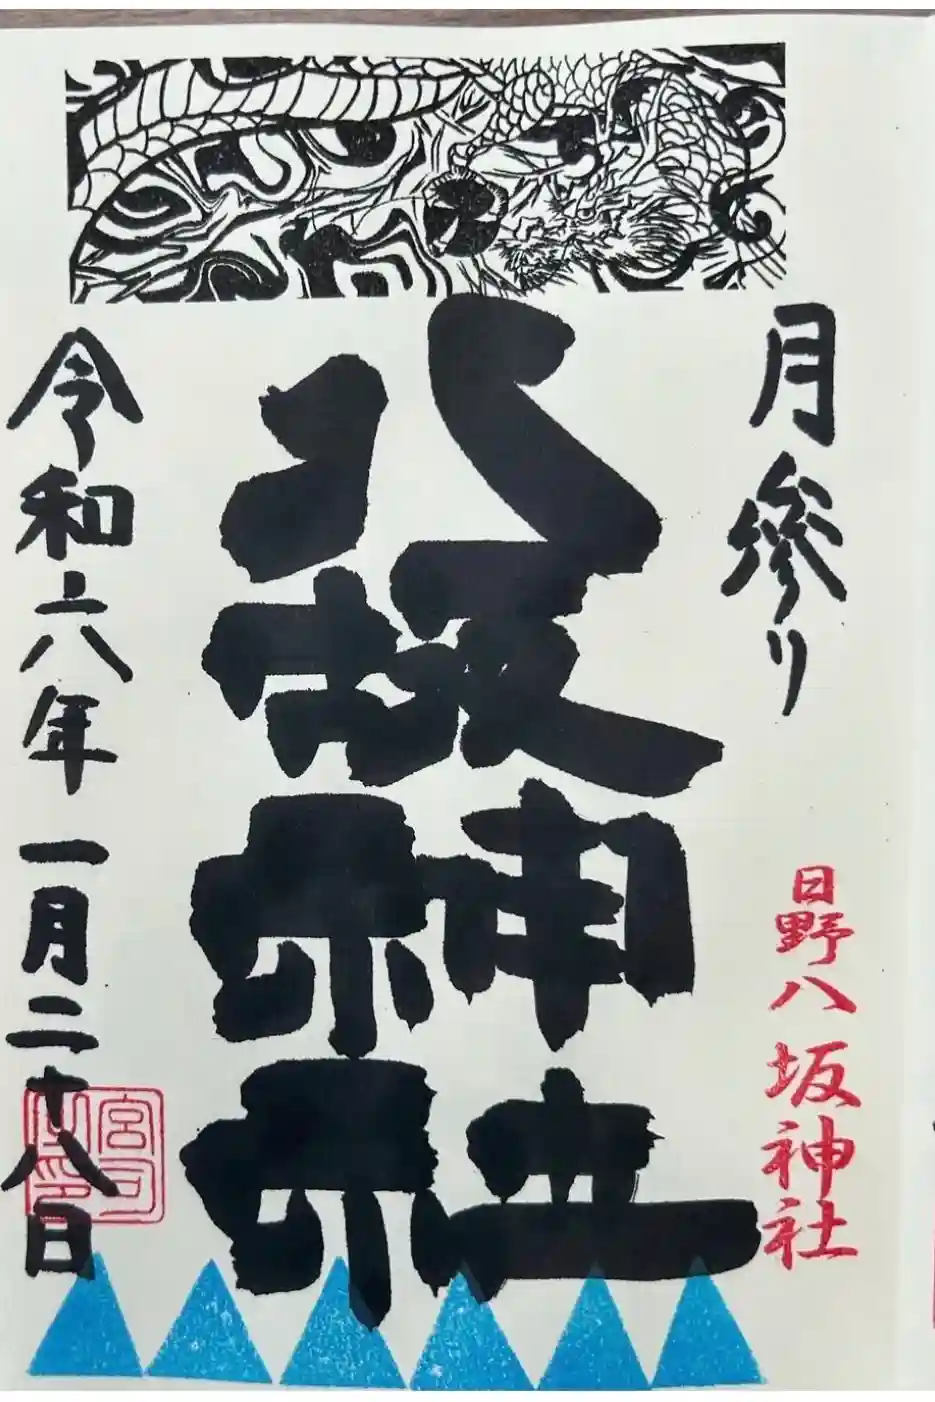 月参り
日野八坂神社
八坂神社
令和六年 一月二十八日
宮司之印